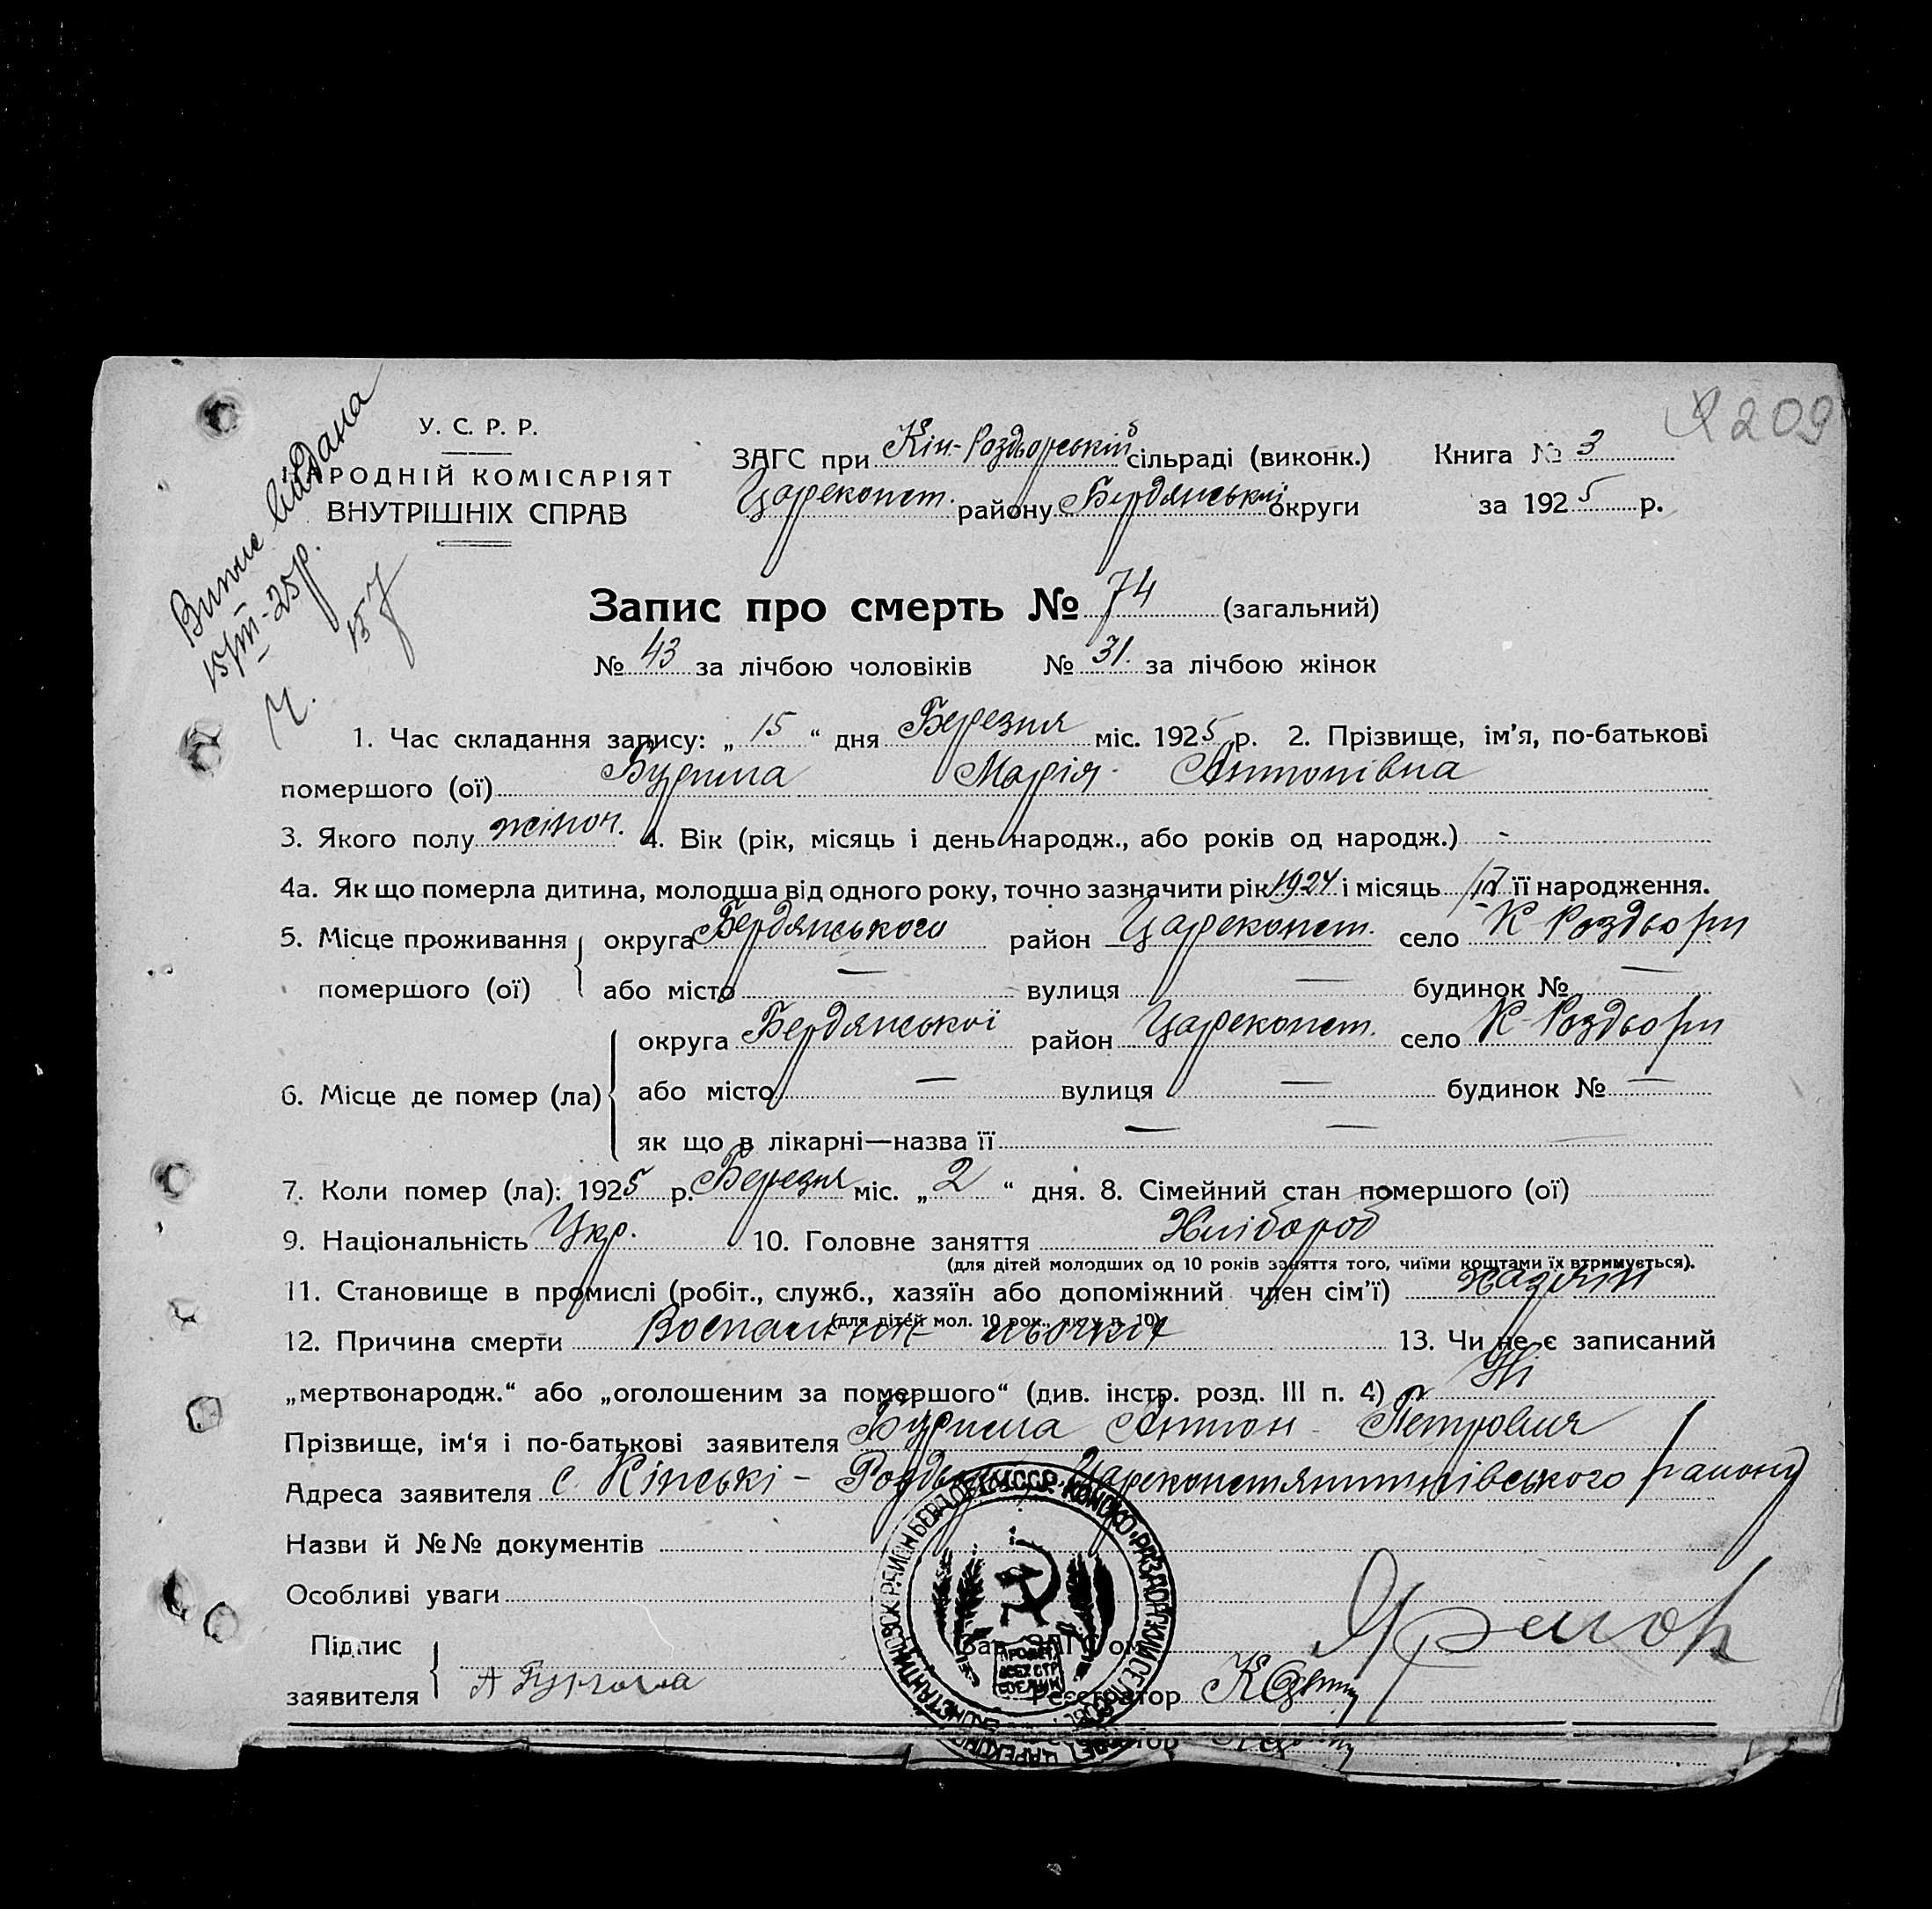 209
Випис видана
15/III-25 р.
У. С. Р. Р.
НАРОДНІЙ КОМІСАРІЯТ
ВНУТРІШНІХ СПРАВ
ЗАГС при Кін-Роздорській сільраді (виконк.) Книга № 3
Цареконст. району Бердянської округи за 1925 р.
Запис про смерть № 74 (загальний)
№ 43 за лічбою чоловіків № 31. за лічбою жінок
1. Час складання запису: „ 15 “ дня Березня міс. 1925 р. 2. Прізвище, ім'я, по-батькові
помершого (ої) Бурима Марія Антонівна
3. Якого полу жіноч. 4. Вік (рік, місяць і день народж., або років од народж.) -
4а. Як що померла дитина, молодша від одного року, точно зазначити рік 1924 і місяць її народження.
5. Місце проживання округа Бердянського район Цареконст. село К-Роздьори
помершого (ої) або місто — вулиця — будинок № —
округа Бердянської район Цареконст. село К-Роздьори
6. Місце де помер (ла) або місто — вулиця — будинок № —
як що в лікарні—назва її — —
7. Коли помер (ла): 1925 р. Березня міс. „ 2 “ дня. 8. Сімейний стан помершого (ої)
9. Національність Укр. 10. Головне заняття Хлібороб
(для дітей молодших од 10 років заняття того, чиїми коштами їх втримується).
11. Становище в промислі (робіт., служб., хазяїн або допоміжний член сім'ї) хазяїн
(для дітей мол. 10 рок., як у п. 10)
12. Причина смерти 13. Чи не є записаний
„мертвонародж.“ або „оголошеним за помершого“ (див. інстр. розд. III п. 4) Ні
Прізвище, ім'я і по-батькові заявителя Бурима Антон Петровия
Адреса заявителя с. Кінські - Роздьори Царекопстянтинівського району
Назви й №№ документів
Особливі уваги
Підпис
заявителя А Бурима
Зав. ЗАГС'ом
Реєстратор